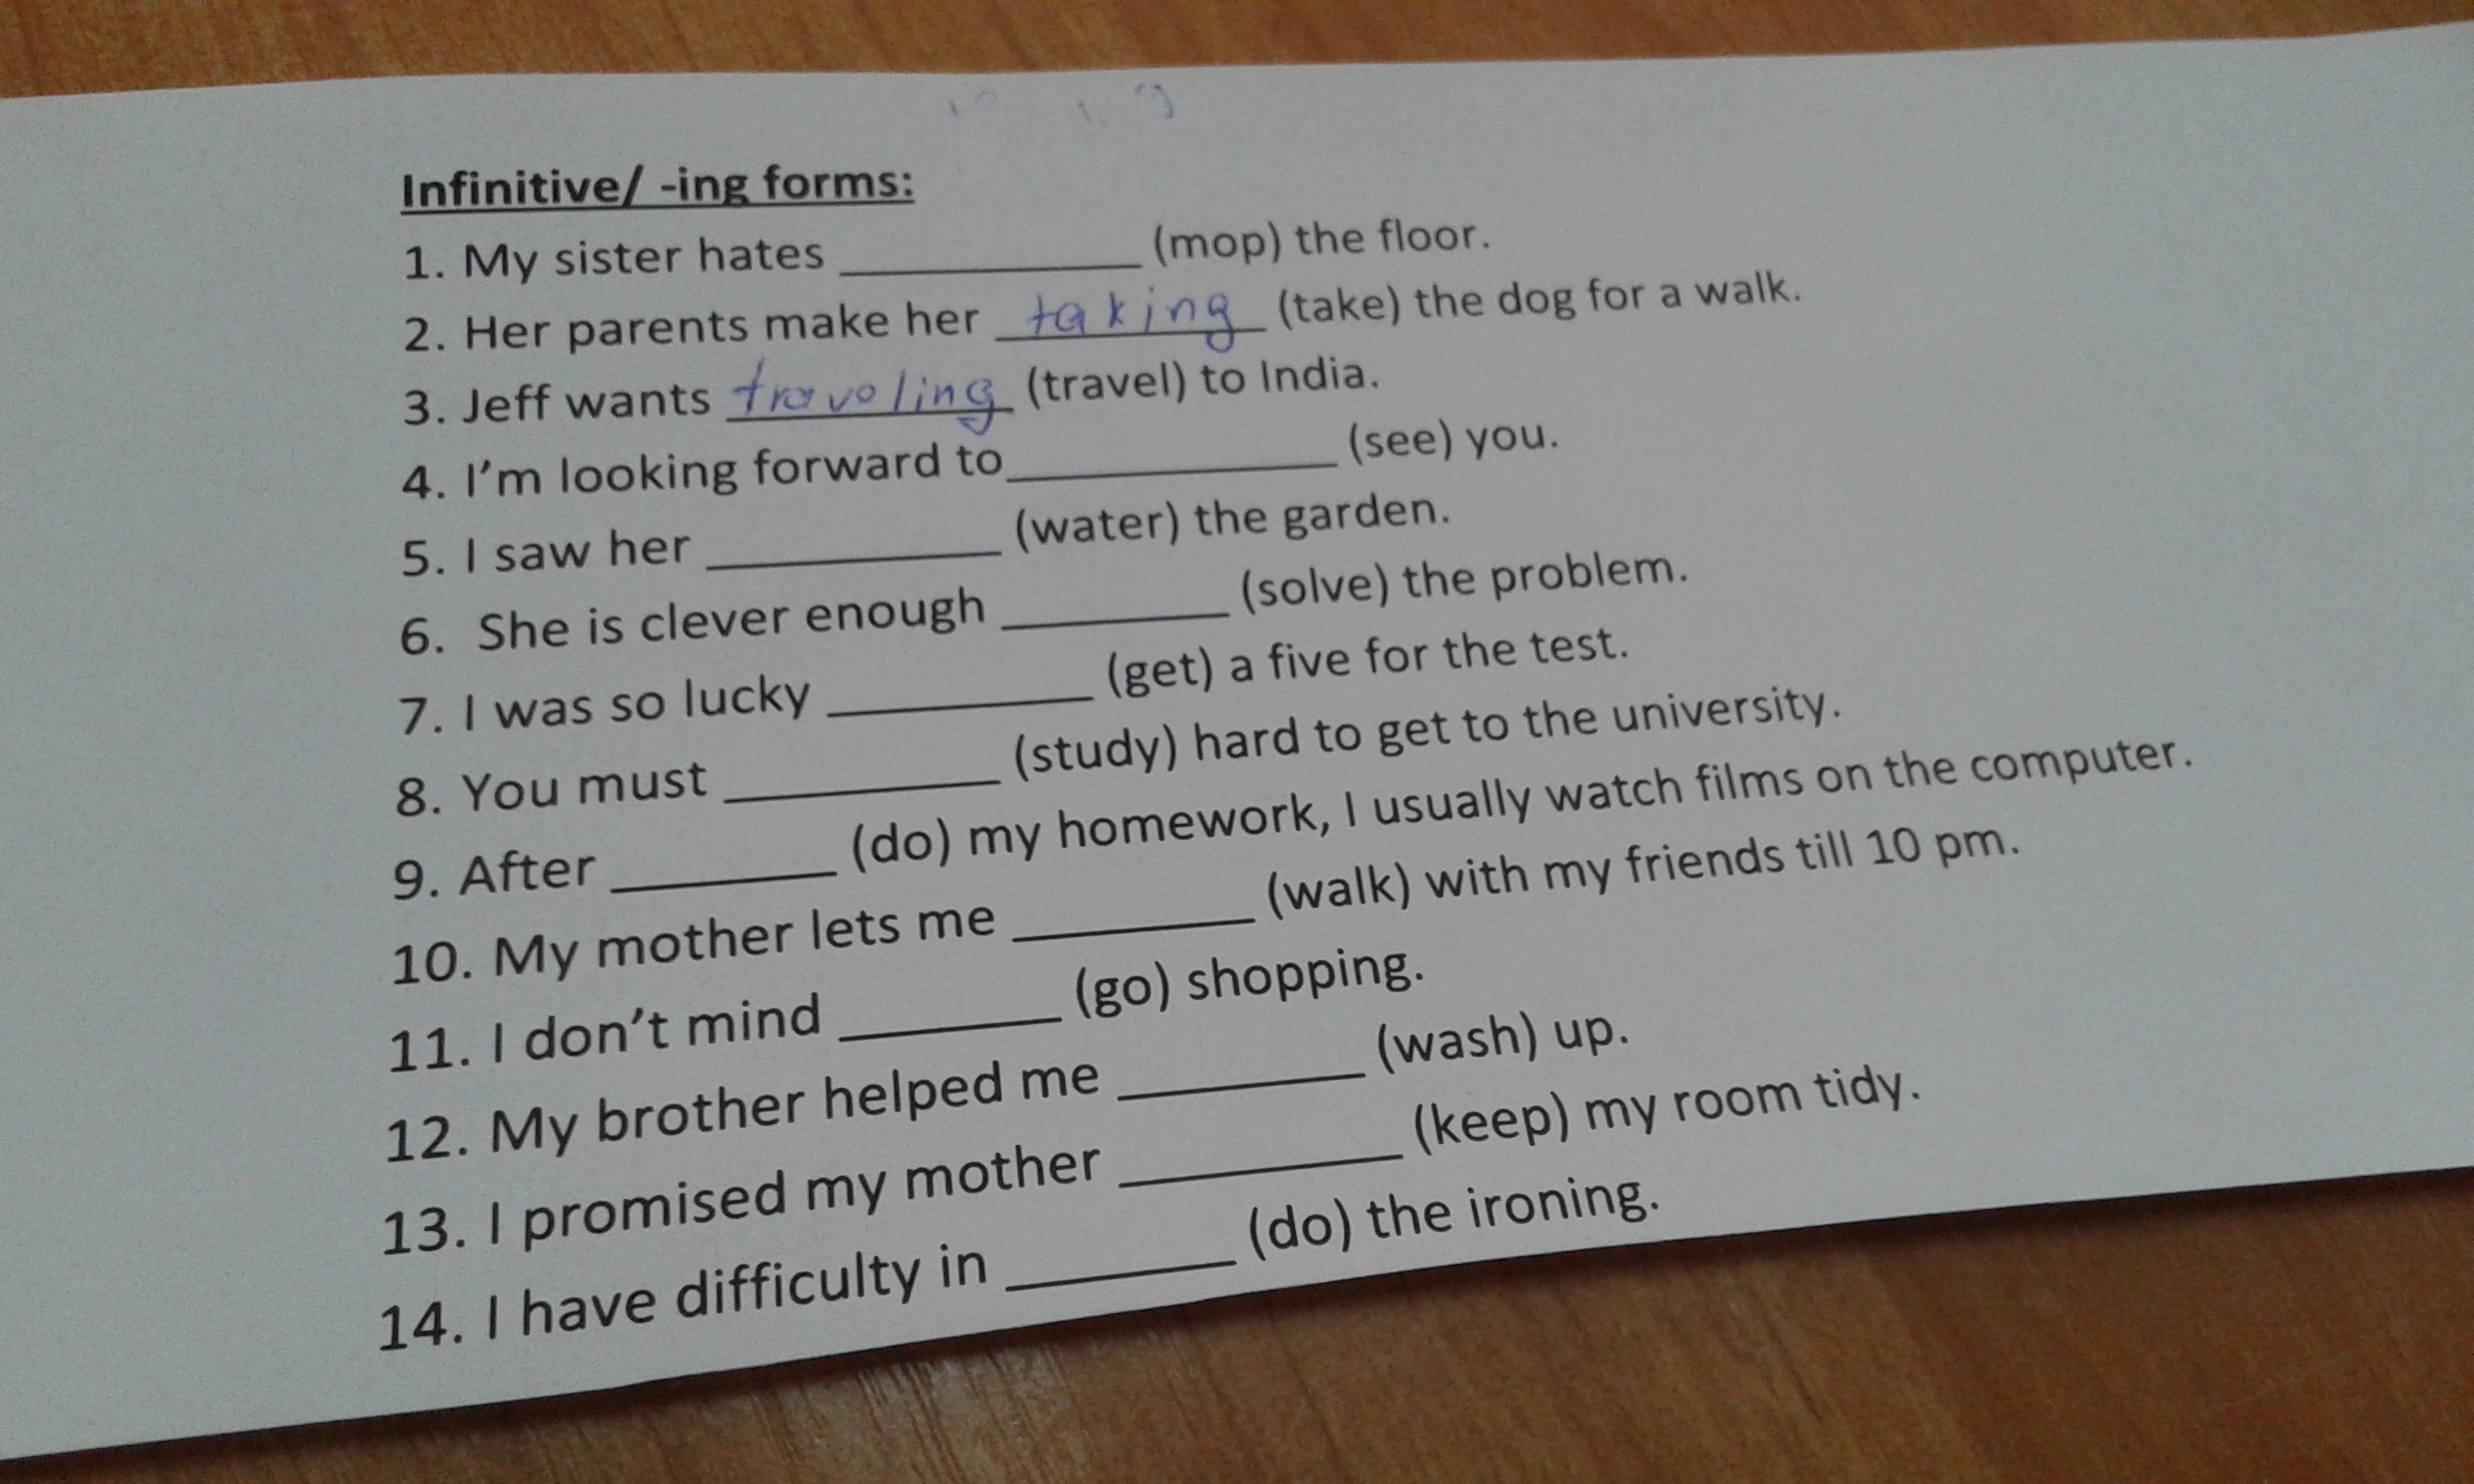 Infinitive/ -ing forms:
1. My sister hates ____________ (mop) the floor.
2. Her parents make her taking (take) the dog for a walk.
3. Jeff wants traveling (travel) to India.
4. I'm looking forward to_____________ (see) you.
5. I saw her ____________ (water) the garden.
6. She is clever enough _________ (solve) the problem.
7. I was so lucky ___________ (get) a five for the test.
8. You must ___________ (study) hard to get to the university.
9. After _________ (do) my homework, I usually watch films on the computer.
10. My mother lets me _________ (walk) with my friends till 10 pm.
11. I don't mind ________ (go) shopping.
12. My brother helped me _________ (wash) up.
13. I promised my mother __________ (keep) my room tidy.
14. I have difficulty in ________ (do) the ironing.